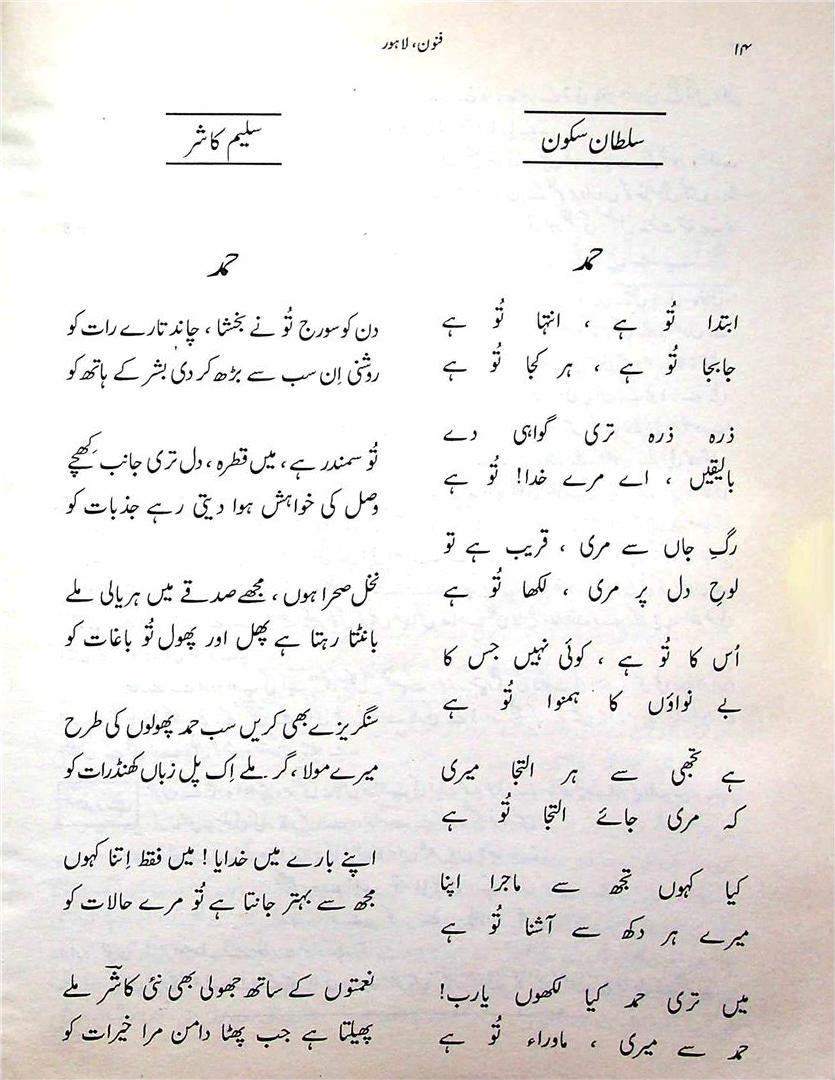 ۱۴
فنون، لاہور
سلطان سکون
حمد
ابتدا تُو ہے ، انتہا تُو ہے
جابجا تُو ہے ، ہر کجا تُو ہے
ذرہ ذرہ تری گواہی دے
بالیقیں ، اے مرے خدا! تُو ہے
رگِ جاں سے مری ، قریب ہے تو
لوحِ دل پر مری ، لکھا تُو ہے
اُس کا تُو ہے ، کوئی نہیں جس کا
بے نواؤں کا ہمنوا تُو ہے
ہے تجھی سے ہر التجا میری
کہ مری جائے التجا تُو ہے
کیا کہوں تجھ سے ماجرا اپنا
میرے ہر دکھ سے آشنا تُو ہے
میں تری حمد کیا لکھوں یارب!
حمد سے میری ، ماوراء تُو ہے
سلیم کاشر
حمد
دن کو سورج تُو نے بخشا ، چاند تارے رات کو
روشنی اِن سب سے بڑھ کر دی بشر کے ہاتھ کو
تُو سمندر ہے ، میں قطرہ ، دل تری جانب کھِچے
وصل کی خواہش ہوا دیتی رہے جذبات کو
نخلِ صحرا ہوں ، مجھے صدقے میں ہریالی ملے
بانٹتا رہتا ہے پھل اور پھول تُو باغات کو
سنگریزے بھی کریں سب حمد پھولوں کی طرح
میرے مولا ، گر ملے اِک پل زباں کھنڈرات کو
اپنے بارے میں خدایا ! میں فقط اِتنا کہوں
مجھ سے بہتر جانتا ہے تُو مرے حالات کو
نعمتوں کے ساتھ جھولی بھی نئی کاشرؔ ملے
پھیلتا ہے جب پھٹا دامن مرا خیرات کو